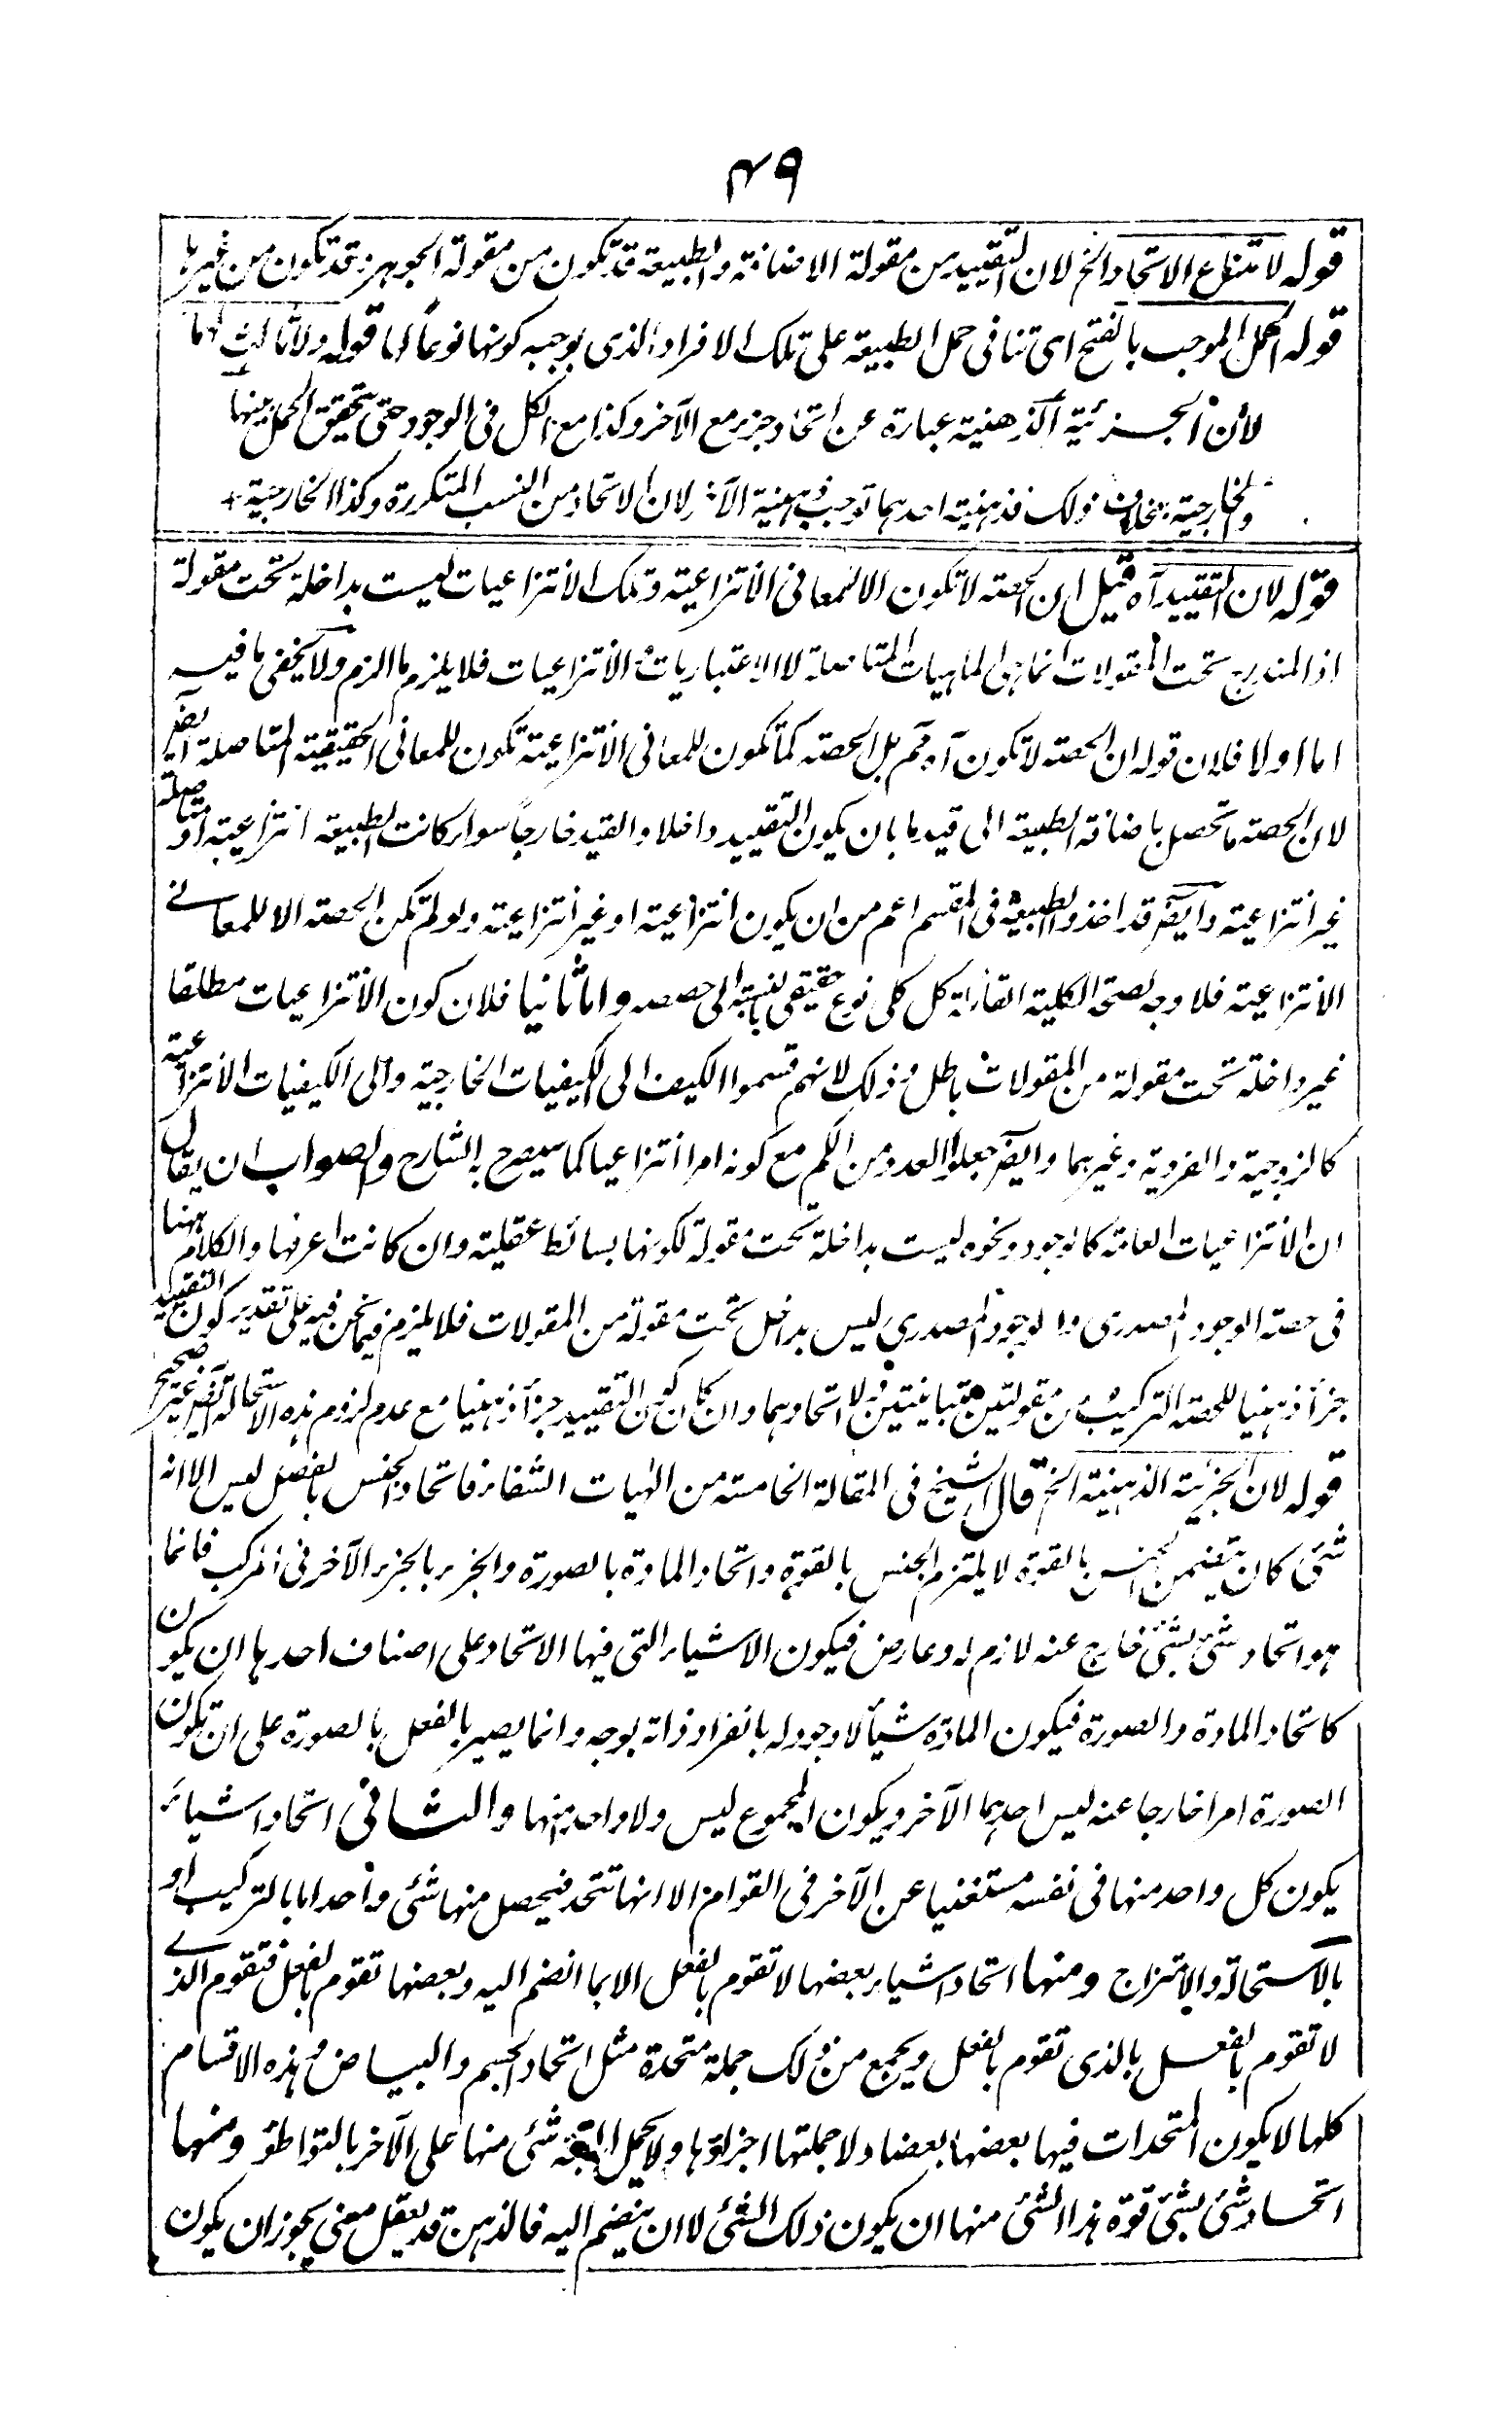 ۴۹
قوله لامتناع الاتحاد الخ لان التقييد من مقولة الاضافة والطبيعة قد تكون من مقولة الجوهر وقد تكون من غيرها
قوله الحمل الموجب بالفتح اى تنافى حمل الطبيعة على تلك الافراد الذى يوجبه كونها نوعاً لها قوله ولا ثالث لهما
لأن الجزئية الذهنية عبارة عن اتحاد جزء مع الآخر وكذا مع الكل فى الوجود حتى يتحقق الحمل بينها
والخارجية بخلاف ذلك فذهنية احدهما توجب ذهنية الآخر لان الاتحاد من النسب المتكررة وكذا الخارجية +
قوله لان التقييد آه قيل ان الحصة لا تكون الا للمعانى الانتزاعية وتلك الانتزاعيات ليست بداخلة تحت مقولة
اذ المندرج تحت المقولات انما هى الماهيات المتاصلة لا الاعتباريات الانتزاعيات فلا يلزم ما الزم ولا يخفى ما فيه
اما اولا فلان قوله ان الحصة لا تكون آه مم بل الحصة كما تكون للمعانى الانتزاعية تكون للمعانى الحقيقية المتاصلة ايضا
لان الحصة ما تحصل باضافة الطبيعة الى قيد ما بان يكون التقييد داخلا والقيد خارجاً سواء كانت الطبيعة انتزاعية او متاصلة
غير انتزاعية وايضا قد اخذوا الطبيعة فى المقسم اعم من ان يكون انتزاعية او غير انتزاعية ولو لم تكن الحصة الا للمعانے
الانتزاعية فلا وجه لصحة الكلية القائلة كل كلى نوع حقيقى بالنسبة الى حصصه واما ثانيا فلان كون الانتزاعيات مطلقا
غير داخلة تحت مقولة من المقولات باطل وذلك لانهم قسموا الكيف الى الكيفيات الخارجية والى الكيفيات الانتزاعية
كالزوجية والفردية وغيرهما وايضا جعلوا العدد من الكم مع كونه امرا انتزاعيا كما سيصرح به الشارح والصواب ان يقال
ان الانتزاعيات العامة كالوجود ونحوه ليست بداخلة تحت مقولة لكونها بسائط عقلية وان كانت اعرفها والكلام ههنا
فى حصة الوجود المصدرى والوجود المصدرى ليس بداخل تحت مقولة من المقولات فلا يلزم فيما نحن فيه على تقدير كون التقييد
جزأ ذهنيا للحصة التركيب من مقولتين متباينتين ولا اتحادهما وان كان كون التقييد جزأ ذهنيا مع عدم لزوم هذه الاستحالة ايضا غير صحيح
قوله لان الجزئية الذهنية الخ قال الشيخ فى المقالة الخامسة من الٰهيات الشفاء فاتحاد الجنس بالفصل ليس الا انه
شئى كان يتضمن الجنس بالقوة لا يلتزم الجنس بالقوة واتحاد المادة بالصورة والجزء بالجزء الآخر فى المركب فانما
هو اتحاد شئى بشئى خارج عنه لازم له وعارض فيكون الاشياء التى فيها الاتحاد على اصناف احدها ان يكون
كاتحاد المادة والصورة فيكون المادة شيأ لا وجود له بانفراد ذاته بوجه وانما يصير بالفعل بالصورة على ان تكون
الصورة امرا خارجا عنه ليس احدهما الآخر ويكون المجموع ليس ولا واحد منهما والثانى اتحاد اشياء
يكون كل واحد منها فى نفسه مستغنيا عن الآخر فى القوام الا انها تتحد فيحصل منها شئى واحد اما بالتركيب او
بالاستحالة والامتزاج ومنها اتحاد اشياء بعضها لا تقوم بالفعل الا بما انضم اليه وبعضها تقوم بالفعل فتقوم الذے
لا تقوم بالفعل بالذى تقوم بالفعل ويجمع من ذلك جملة متحدة مثل اتحاد الجسم والبياض وهذه الاقسام
كلها لا يكون المتحدات فيها بعضها بعضا ولا جملتها اجزاؤها ولا يحمل البتة شئى منها على الآخر بالتواطؤ ومنها
اتحاد شئى بشئى قوة هذا الشئى منها ان يكون ذلك الشئى لا ان ينضم اليه فالذهن قد يعقل معنى يجوز ان يكون